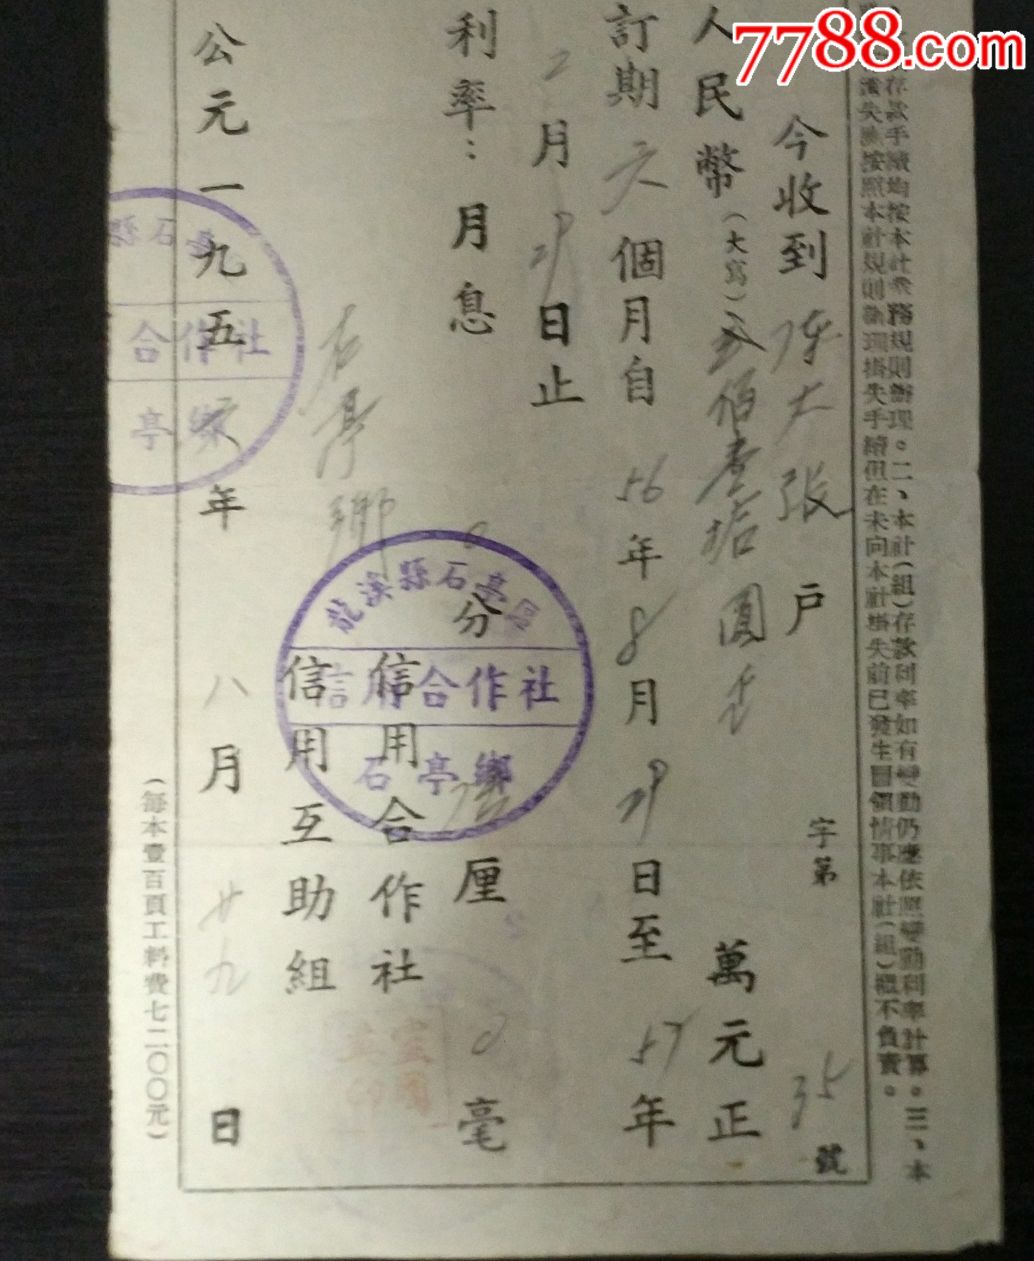 7788.com
存款手續均按本社業務規則辦理。二、本社(組)存款利率如有變動仍應依照變動利率計算。三、本
遺失應按照本社規則辦理掛失手續但在未向本社掛失前已發生冒領情事本社(組)概不負責。
今收到 陳大張 戶 字第 35 號
人民幣(大寫)貳佰壹拾圓 萬元正
訂期 六 個月自 56 年 8 月 29 日至 57 年
2 月 29 日止
利率：月息 0 分 厘 0 毫
信用合作社
石亭鄉 信用互助組
公元一九五六年 八 月 廿九 日
(每本壹百頁工料費七二〇〇元)
龍溪縣石亭
信用合作社
石亭鄉
縣石亭
合作社
亭鄉